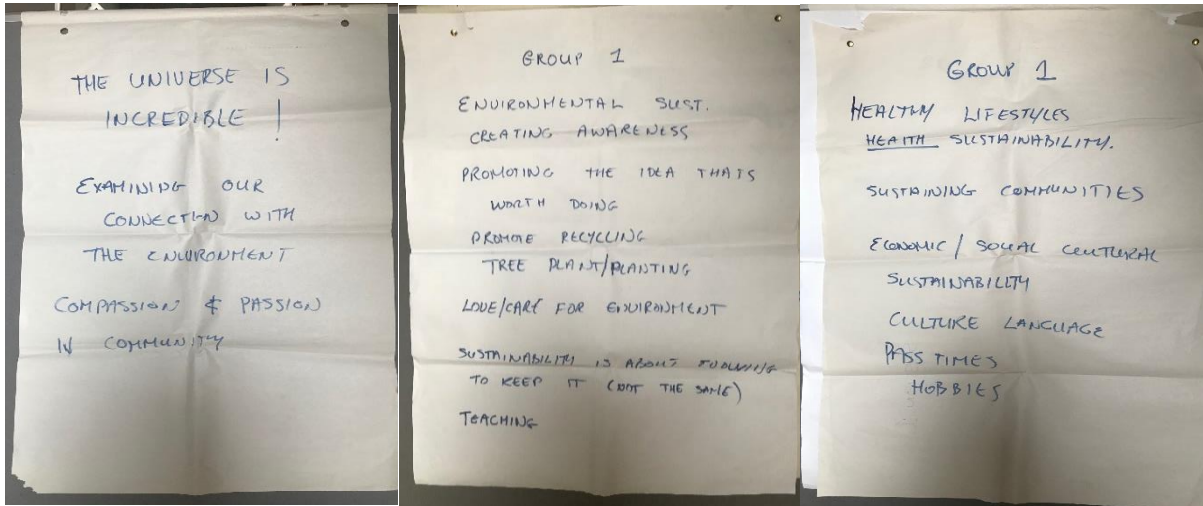 THE UNIVERSE IS
INCREDIBLE !
EXAMINING OUR
CONNECTION WITH
THE ENVIRONMENT
COMPASSION & PASSION
IN COMMUNITY
GROUP 1
ENVIRONMENTAL SUST.
CREATING AWARENESS
PROMOTING THE IDEA THATS
WORTH DOING
PROMOTE RECYCLING
TREE PLANT/PLANTING
LOVE/CARE FOR ENVIRONMENT
SUSTAINABILITY IS ABOUT EVOLVING
TO KEEP IT (NOT THE SAME)
TEACHING
GROUP 1
HEALTHY LIFESTYLES
HEALTH SUSTAINABILITY.
SUSTAINING COMMUNITIES
ECONOMIC / SOCIAL CULTURAL
SUSTAINABILITY
CULTURE LANGUAGE
PASS TIMES
HOBBIES